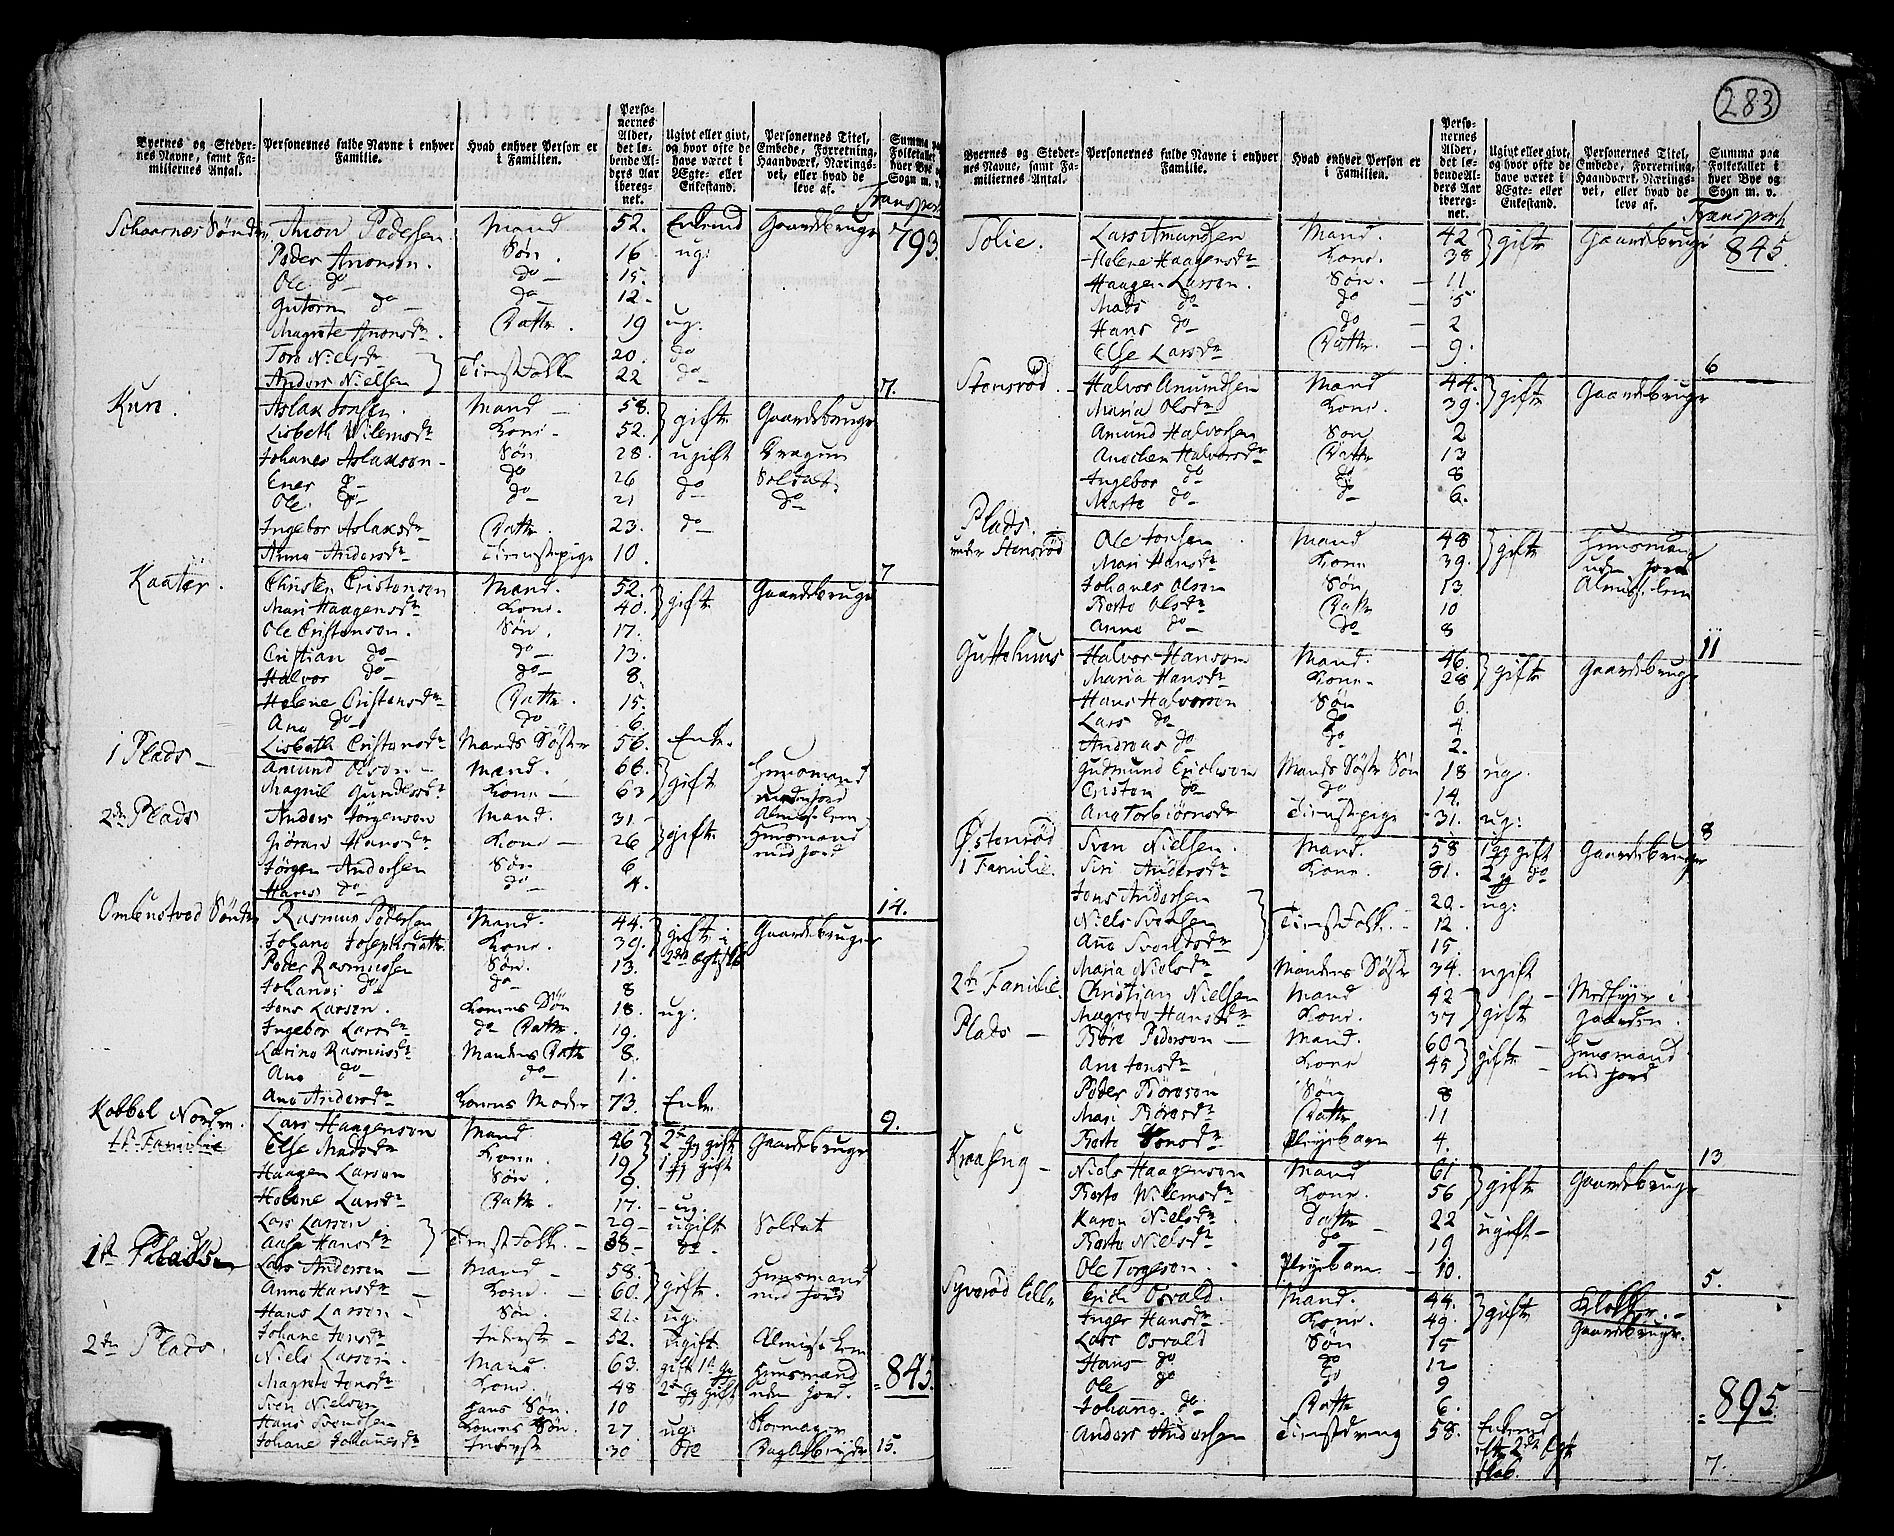 283
Byernes og Stedernes Navne, samt Familiernes Antal. | Personernes fulde Navne i enhver Familie. | Hvad enhver Person er i Familien. | Personernes Alder, det løbende Alders Aar iberegnet. | Ugivt eller givt, og hvor ofte de have været i Ægte- eller Enkestand. | Personernes Titel, Embede, Forretning, Haandværk, Næringsvei, eller hvad de leve af. | Summa paa Folketallet i hver Bye og Sogn m. v.
Transport
793.
Schaarnæs Sønder | Anon Pedersen | Mand | 52. | Enkemd | Gaardbruger
Peder Anonsen. | Søn. | 16 | ug:
Ole do | do | 15.
Gutorm do | do | 12.
Magrete Anonsdr. | Datter. | 19 | ug:
Tore Nielsdr | Tienst Folk | 20. | do
Anders Nielsen | 22 | do | 7.
Kure. | Aslak Jonsen. | Mand | 58. | gifte | Gaardebruger
Lisbeth Wilemsdr | Kone | 52.
Johanes Aslaksen | Søn | 28. | ugift | Dragun
Ener do | do | 26 | do | Soldat
Ole do | do | 21 | do
Ingebor Aslaksdr | Datter. | 23. | do
Anne Andersdr | Tienstpige | 10. | 7
Kaatør. | Christen Cristensen | Mand. | 52. | gifte | Gaardebruger
Mari Haagensdr | Kone. | 40.
Ole Cristensen. | Søn. | 17.
Cristian do | do | 13.
Halvor do | do | 8.
Helene Cristensdr | Datter. | 15.
Ane do | do | 6
Lisbeth Cristensdr | Mands Søster | 56. | Enke.
1 Plads | Amund Olsen | Mand. | 66. | gift | Huusmand uden jord Almisselem
Magnil Gundersdr | Kone | 63
2den Plads | Anders Jörgensen | Mand. | 31. | gifte | Huusmand med jord
Giøran Hansdr | Kone | 26
Jörgen Andersen | Søn | 6
Hans do | do | 4. | 14.
Ombustvod Sönder | Rasmus Pedersen | Mand. | 44. | gifte i 2det Egteskb | Gaardebruger
Johane Josephsdatter | Kone. | 39.
Peder Rasmussen | Søn. | 13.
Johanes do | do | 8
Jens Larsen. | Konens Søn | 18. | ug:
Ingebor Larsdr | do Datter. | 19.
Larine Rasmusdr | Mandens Datter | 8.
Ane do | do | 1.
Ane Andersdr | Konens Moder | 73. | Enke | 9.
Kobbel Norden. 1te Familie | Lars Haagensen | Mand | 46 | 2de gg gift | Gaardebruger
Else Madsdr | Kone. | 19 | 1 gg gift
Haagen Larsen | Søn. | 9.
Helene Larsdr | Datter | 17. | ug:
Lars Larsen | Tienst Folk. | 29 | ugift | Soldat
Aase Hansdr | 38 | do
1te Plads | Lars Andersen | Mand | 58. | gifte. | Huusmand med jord
Anne Hansdr | Kone. | 60.
Hans Larsen | Søn. | 21. | ug:
Johane Jensdr | Inderste | 52. | ugift | Almisse Lem
2den Plads. | Niels Larsen. | Mand. | 63. | gift 1te gg | Huusmand uden jord.
Magrete Jonsdr | Kone. | 48 | 2de gg gift | 845.
Sven Nielsen | hans Søn. | 10
Hans Svendsen | Konens Søn. | 27 | ug:
Johane Johanesdr | Inderste | 30 | 15.
Byernes og Stedernes Navne, samt Familiernes Antal. | Personernes fulde Navne i enhver Familie. | Hvad enhver Person er i Familien. | Personernes Alder, det løbende Alders Aar iberegnet. | Ugivt eller givt, og hvor ofte de have været i Ægte- eller Enkestand. | Personernes Titel, Embede, Forretning, Haandværk, Næringsvei, eller hvad de leve af. | Summa paa Folketallet i hver Bye og Sogn m. v.
Transport
845.
Solie. | Lars Amundsen | Mand. | 42 | gifte | Gaardebruger
Helene Haagensdr | Kone. | 38
Haagen Larsen. | Søn. | 11
Mads do | do | 5
Hans do | do | 2
Else Larsdr | Datter | 9. | 6
Stensröd. | Halvor Amundsen | Mand | 44. | gifte | Gaardebruger
Maria Olsdr | Kone. | 39.
Amund Halvorsen | Søn | 2
Anochen Halvorsdr | Datter | 13
Ingebor do | do | 8
Marte do | do | 6.
Plads under Stensröd | Ole Jonsen | Mand | 48 | gift | Huusmand uden jord Almisselem
Mari Hansdr | Kone | 39.
Johanes Olsen | Søn | 13
Berte Olsdr | Datter | 10
Anne do | do | 8 | 11
Guttehuus | Halvor Hansen | Mand. | 46. | gifte | Gaardebruger
Maria Hansdr | Kone. | 28
Hans Halvorsen | Søn | 6.
Lars do | do | 4.
Andreas do | do | 2.
Gudmund Ericksen | Mands Søster Søn | 18 | ug.
Cristen do | do | 14.
Ane Torbiørnsdr | Tienstpige | 31. | ug: | 8
Østenröd 1 Familie. | Sven Nielsen. | Mand. | 58 | 1 gg gift | Gaardebruger
Siri Andersdr | Kone. | 81. | 2 gg do
Jens Andersen | Tienst Folk. | 20. | ug:
Niels Svensen | 12.
Ane Svensdr | 15.
Maria Nielsdr | Mandens Søster | 34. | ugift
2den Familie. | Christian Nielsen | Mand | 42 | gifte | Medhjelp i Gaarden.
Magrete Hansdr | Kone. | 37
Plads | Børe Pedersen | Mand. | 60 | gifte | Huusmand med jord
Ane Jonsdr | Kone | 45
Peder Børesen | Søn | 8
Mari Børesdr | Datter | 11
Berte | Pleyebarn | 4. | 13
Kraaseng | Niels Haagensen | Mand | 61 | gifte | Gaardebruger
Berte Wilemsdr | Kone. | 56
Karen Nielsdr | datter | 22 | ugift
Berte Nielsdr | do | 19
Ole Torgesen. | Pleyebarn | 10. | 5.
Syveröd lille | Erich Osvald. | Mand. | 44. | gifte | Klokker. Gaardebruger.
Inger Hansdr. | Kone. | 49.
Lars Osvald | Søn | 15
Hans do | do | 12
Ole do | do | 9
Johane do | Datter | 6.
Anders Andersen | Tienstdreng | 58. | Enkemd efter 2det Egteskab. | 895
7.